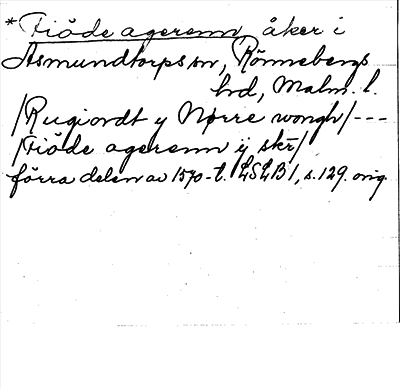 *Fiöde agerenn, åker i
Asmundtorps sn, Rönnebergs
hd, Malm. l.
/Rugiordt y Nørre wongh/---
/Fiöde agerenn ij skr/
förra delen av 1570-t. LSLB1, s. 129. orig.